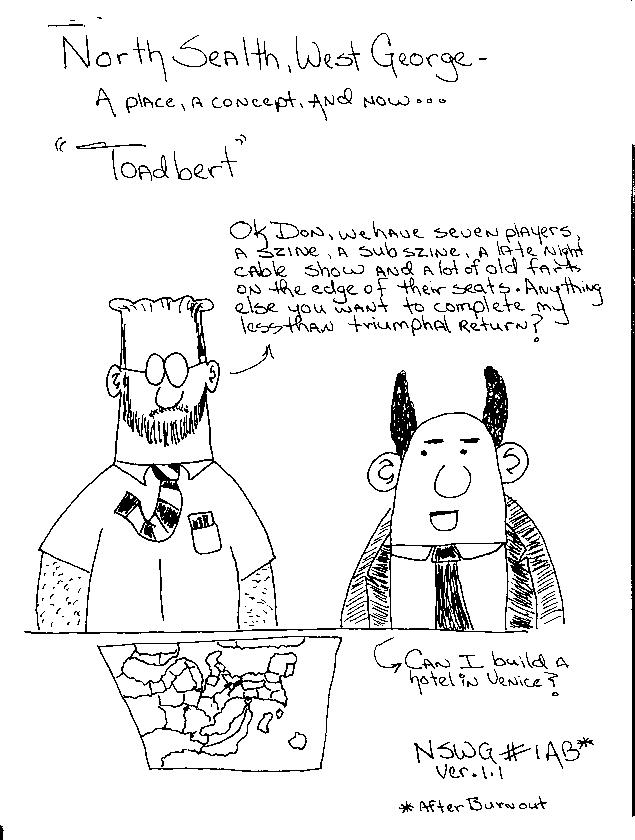 North Sealth, West George -
A place, a concept, and now...
"Toadbert"
Ok Don, we have seven players,
a szine, a subszine, a late night
cable show and a lot of old farts
on the edge of their seats. Anything
else you want to complete my
less than triumphal return?
Can I build a
hotel in Venice?
NSWG #1AB*
Ver. 1.1
*After Burnout